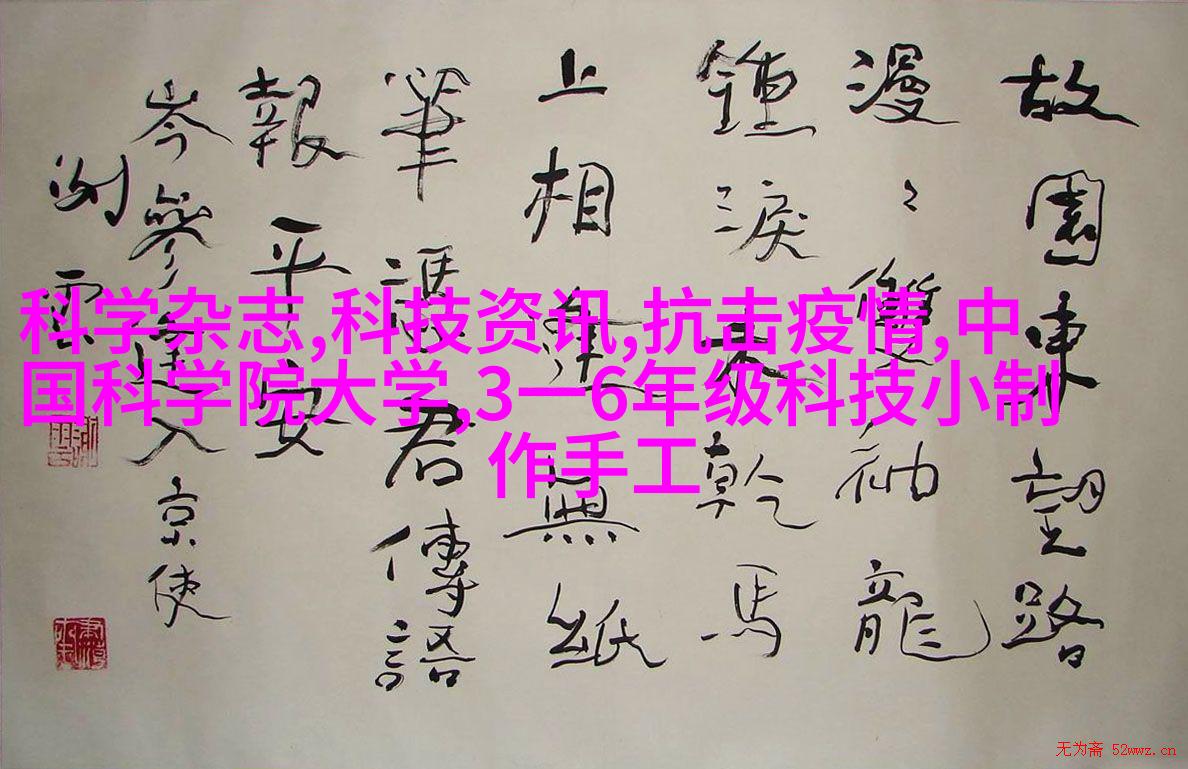 科学杂志,科技资讯,抗击疫情,中
国科学院大学,3一6年级科技小制
作手工
故園東望路
漫〻雙袖龍
鍾淚不乾馬
上相逢無紙
筆馮君傳語
報平安
岑參逢入京使
无为斋 52wwz.cn